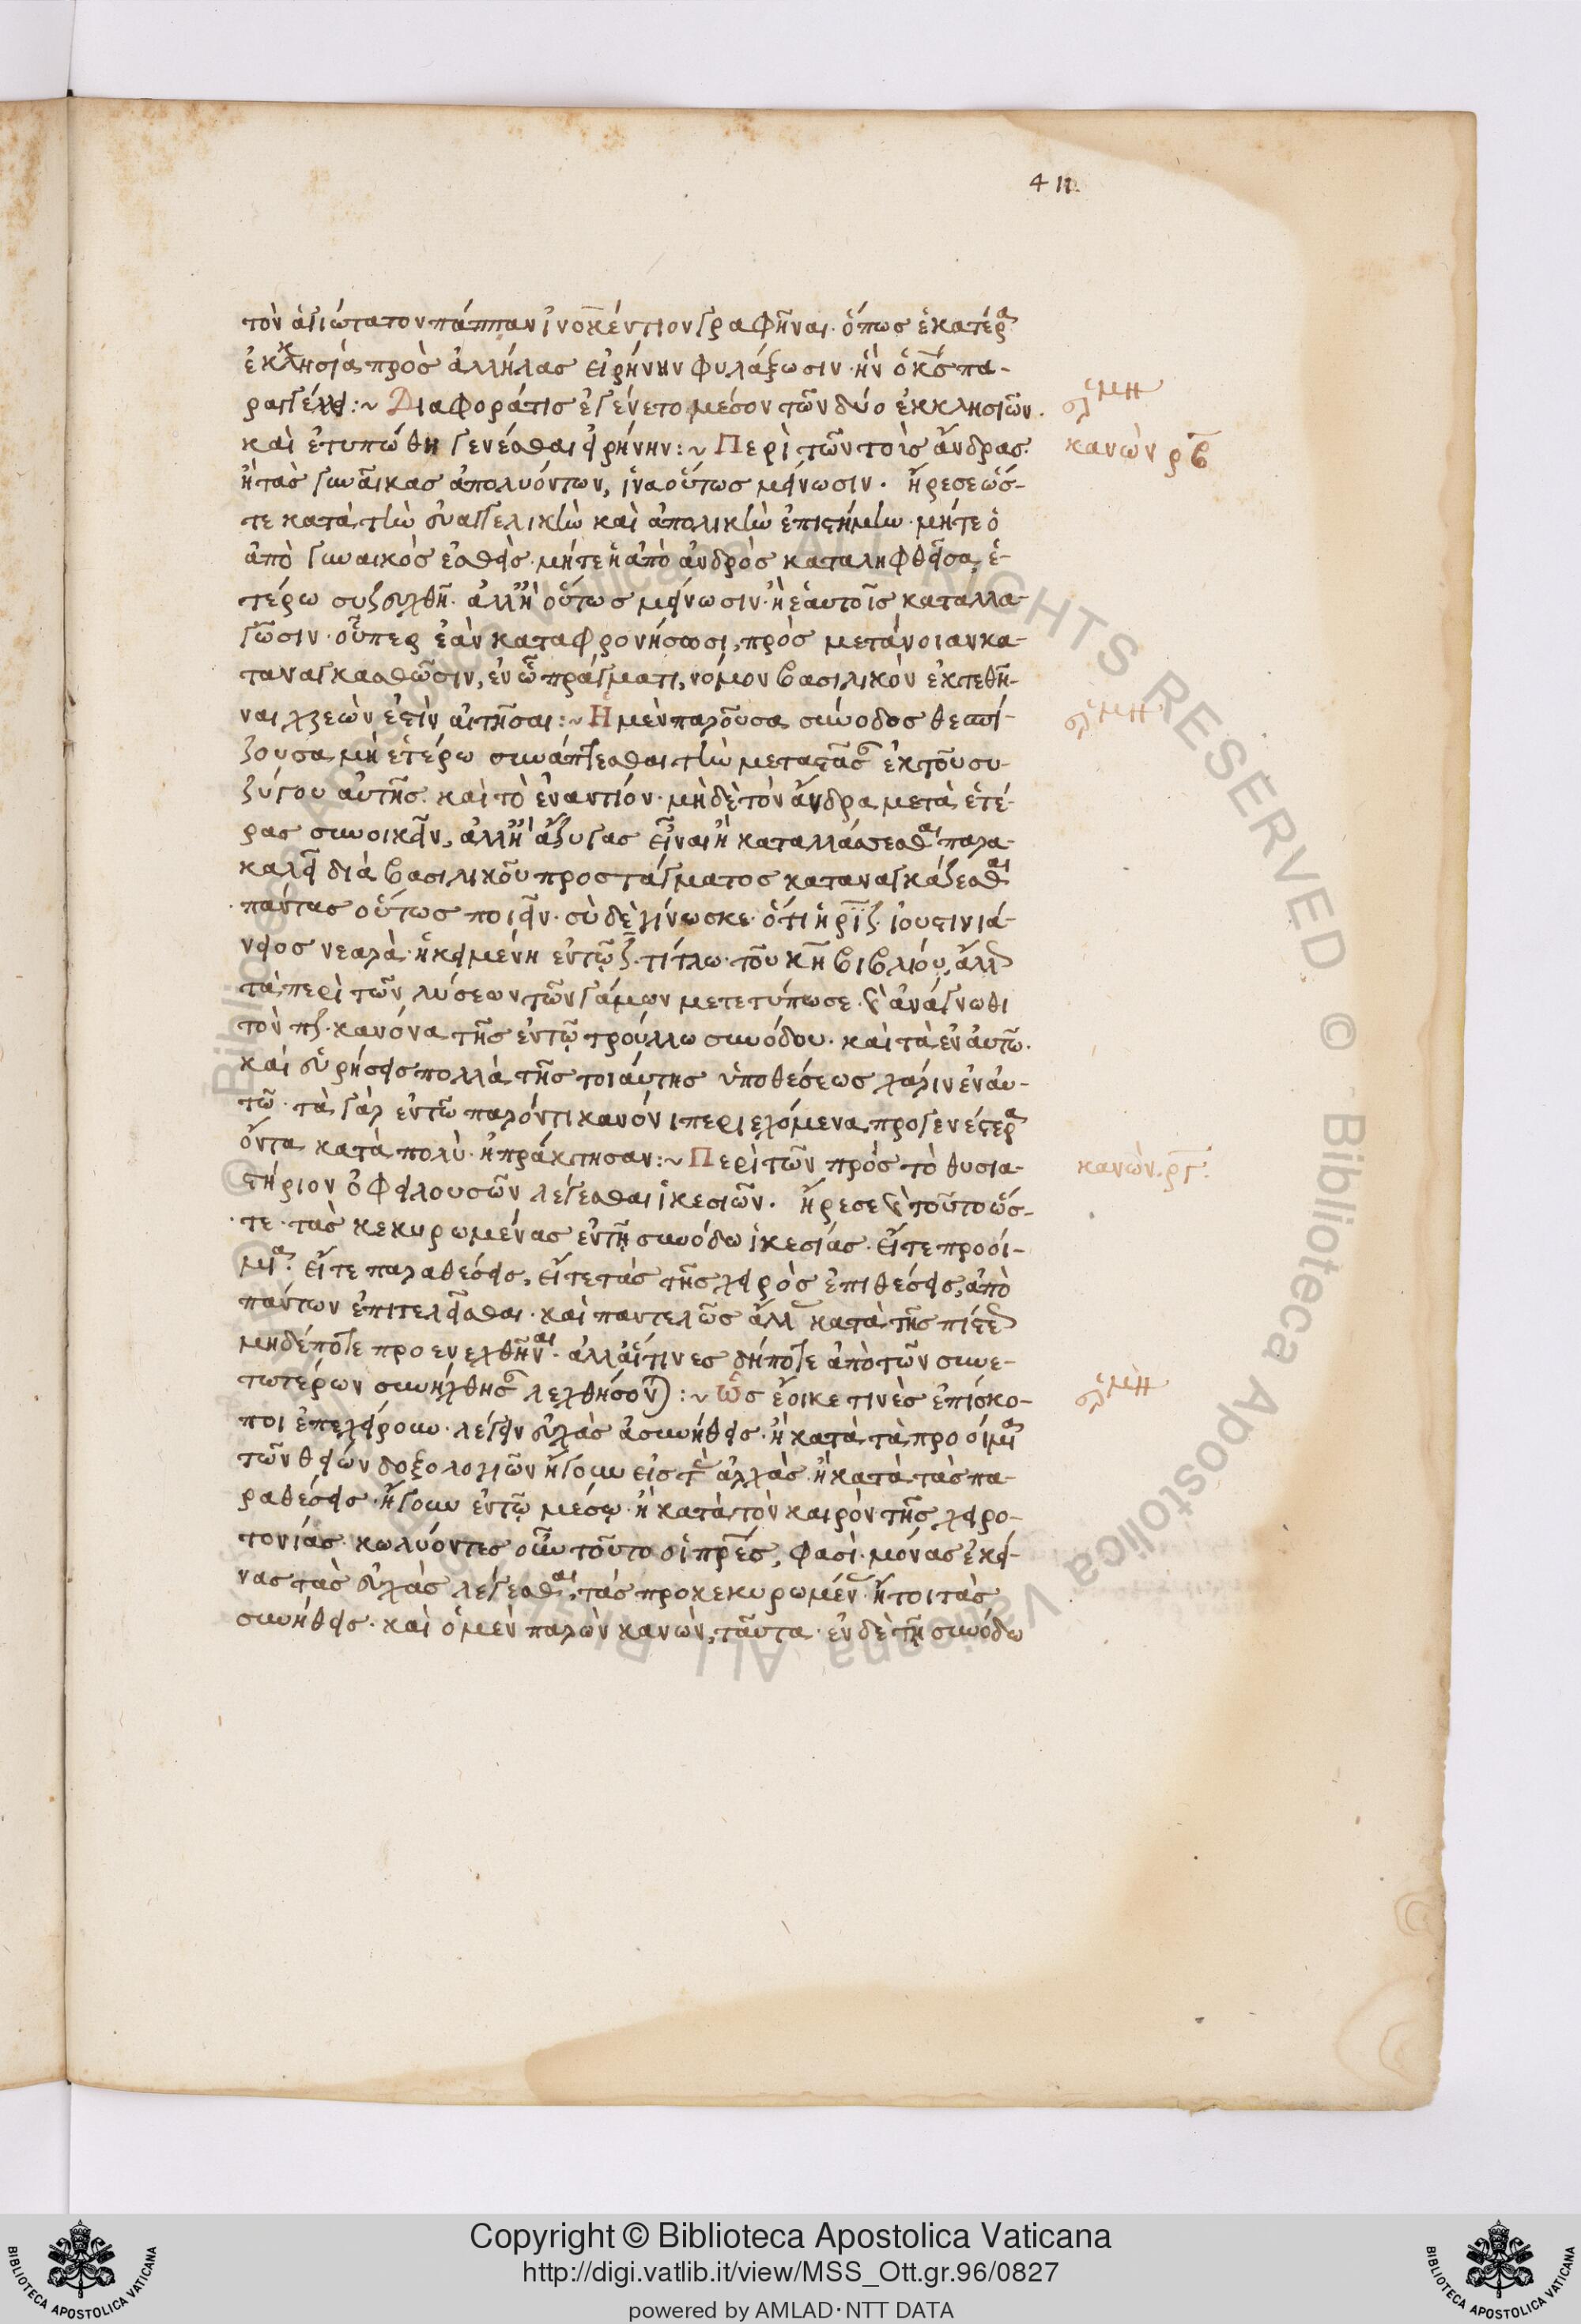 411.
τὸν ἁγιώτατον πάππαν ἰνοκέντιον γραφῆναι· ὅπως ἑκατέρα
ἐκκλησία πρὸς ἀλλήλας εἰρήνην φυλάξωσιν· ἣν ὁ κς πα-
ραγγέλλει :~ Διαφορά τις ἐγένετο μέσον τῶν δύο ἐκκλησιῶν.
σχ ἡμη
καὶ ἐτυπώθη γενέσθαι εἰρήνην :~ Περὶ τῶν τοὺς ἄνδρας.
κανὼν ρβ
ἢ τὰς γυναῖκας ἀπολυόντων, ἵνα οὕτως μείνωσιν. ἤρεσεν ὥσ-
τε κατὰ τὴν εὐαγγελικὴν καὶ ἀποστολικὴν ἐπιστήμην· μήτε ὁ
ἀπὸ γυναικὸς ἐαθεὶς· μήτε ἡ ἀπὸ ἀνδρὸς καταληφθεῖσα, ἑ-
τέρω συζευχθῆ· ἀλλ' ἢ οὕτως μείνωσιν· ἢ ἑαυτοῖς καταλλα-
γῶσιν· οὗπερ ἐὰν καταφρονήσωσι, πρὸς μετάνοιαν κα-
ταναγκασθῶσιν, ἐν ᾧ πράγματι, νόμον βασιλικὸν ἐκτεθῆ-
ναι χρεών ἐστιν αἰτῆσαι :~ Ἡ μὲν παροῦσα σύνοδος θεσπί-
ζουσα μὴ ἑτέρω συνάπτεσθαι τὴν μεταστᾶσαν ἐκ τοῦ συ-
ζύγου αὐτῆς. καὶ τὸ ἐναντίον· μὴ δὲ τὸν ἄνδρα μετὰ ἑτέ-
ρας συνοικεῖν, ἀλλ' ἢ ἄζυγας εἶναι ἢ καταλλάσσεσθαι παρα-
καλεῖ διὰ βασιλικοῦ προστάγματος καταναγκάζεσθαι
πάντας οὕτως ποιεῖν· σὺ δὲ γίνωσκε· ὅτι ἡ ριζ ἰουστινιά-
νειος νεαρὰ· ἡ κειμένη ἐν τῷ ζ τίτλω· τοῦ κη βιβλίου, ἄλλως
τὰ περὶ τῶν λύσεων τῶν γάμων μετετύπωσε· καὶ ἀνάγνωθι
τὸν πζ κανόνα τῆς ἐν τῷ τρούλλω συνόδου· καὶ τὰ ἐν αὐτῶ.
καὶ εὑρήσεις πολλὰ τῆς τοιαύτης ὑποθέσεως χάριν ἐν αὐ-
τῶ· τὰ γὰρ ἐν τῶ παρόντι κανόνι περιεχόμενα προγενέστερα
ὄντα κατὰ πολὺ ἠπράκτησαν :~ Περὶ τῶν πρὸς τὸ θυσια-
κανὼν ργ
στήριον ὀφειλουσῶν λέγεσθαι ἱκεσιῶν. ἤρεσε καὶ τοῦτο ὥσ-
τε· τὰς κεκυρωμένας ἐν τῇ συνόδω ἱκεσίας· εἴτε προοί-
μια· εἴτε παραθέσεις, εἴτε τὰς τῆς χειρὸς ἐπιθέσεις, ἀπὸ
πάντων ἐπιτελεῖσθαι· καὶ παντελῶς ἄλλας κατὰ τῆς πίστεως
μηδέποτε προενεχθῆναι· ἀλλ' αἵτινες δήποτε ἀπὸ τῶν συνε-
τωτέρων συνήχθησαν λεχθήσονται :~ Ὡς ἔοικε τινὲς ἐπίσκο-
ποι ἐπεχείρουν λέγειν εὐχὰς ἀσυνήθεις· ἢ κατὰ τὰ προοίμια
τῶν θείων δοξολογιῶν ἤγουν εἰς τὰς ἀρχὰς· ἢ κατὰ τὰς πα-
ραθέσεις· ἤγουν ἐν τῷ μέσῳ· ἢ κατὰ τὸν καιρὸν τῆς χειρο-
τονίας· κωλύοντες οὖν τοῦτο οἱ πρες, φασὶ· μόνας ἐκεί-
νας τὰς εὐχὰς λέγεσθαι, τὰς προκεκυρωμένας ἤτοι τὰς
συνήθεις· καὶ ὁ μὲν παρὼν κανὼν, ταῦτα· ἐν δὲ τῇ συνόδω
© Biblioteca Apostolica Vaticana ALL RIGHTS RESERVED
Copyright © Biblioteca Apostolica Vaticana
http://digi.vatlib.it/view/MSS_Ott.gr.96/0827
powered by AMLAD·NTT DATA
BIBLIOTECA APOSTOLICA VATICANA
BIBLIOTECA APOSTOLICA VATICANA